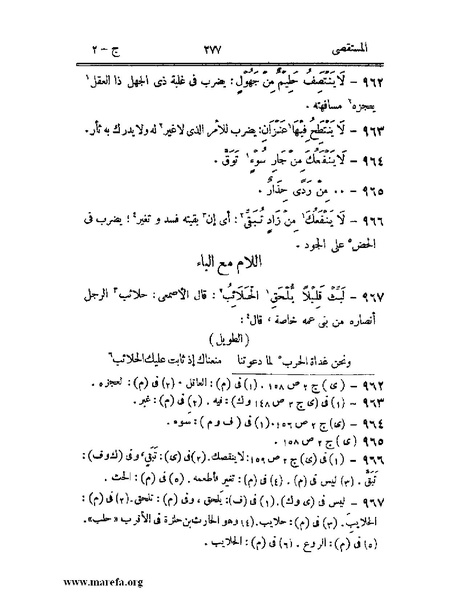 المستقصى ٢٧٧ ج - ٢
٩٦٢ - لَا يَنْتَصِفُ حَلِيْمٌ مِنْ جَهُوْلٍ: يضرب فى غلبة ذى الجهل ذا العقل١
يعجزه٢ مسافهته .
٩٦٣ - لَا يَنْتَطِحُ فِيْهَا١ عَنْزَانِ: يضرب للأمر الذى لاغير٢ له ولا يدرك به ثأر.
٩٦٤ - لَا يَنْفَعُكَ مِنْ جَارِ سُوْءٍ١ تَوَقٍّ .
٩٦٥ - ٠٠ مِنْ رَدًى حِذَارٌ .
٩٦٦ - لَا يَنْفَعُكَ١ مِنْ زَادٍ تُبَقِّىْ٢: أى إن٣ بقيته فسد و تغير٤؛ يضرب فى
الحض٥ على الجود .
اللام مع الباء
٩٦٧ - لَبِّثْ قَلِيْلًا يُلْحَقِ١ الْحَلَائِبُ٢: قال الأصمعى: حلائب٣ الرجل
أنصاره من بنى عمه خاصة ، قال٤:
(الطويل)
ونحن غداة الحرب٥ لما دعوتنا منعناك إذ ثابت عليك الحلائب٦
٩٦٢ - (ى) ج ٢ ص ١٥٨ . (١) فى (م): العاقل . (٢) فى (م): لعجزه .
٩٦٣ - (١) فى (ى) ج ٢ ص ١٤٨ و ك): فيه . (٢) فى (م): غبر.
٩٦٤ - (ى) ج ٢ ص ١٥٦ . (١) فى ( ف و م ): سَوه .
٩٦٥ (ى) ج ٢ ص ١٥٨ .
٩٦٦ - (١) فى (ى) ج ٢ ص ١٥٩: لا ينقصك . (٢) فى (ى): تَبَقّى، و فى (ك و ف):
تَبَقٍّ . (٣) ليس فى (م) . (٤) فى (م): تغير فأطعمه . (٥) فى (م): الحث .
٩٦٧ - ليس فى (ى و ك) . (١) فى (ف): يلحق، و فى (م): تلحق . (٢) فى (م):
الحلايب . (٣) فى (م): حلايب . (٤) وهو الحارث بن حلزة فى الأقرب « حلب».
(٥) فى (م): الروع . (٦) فى (م): الحلايب .
www.marefa.org